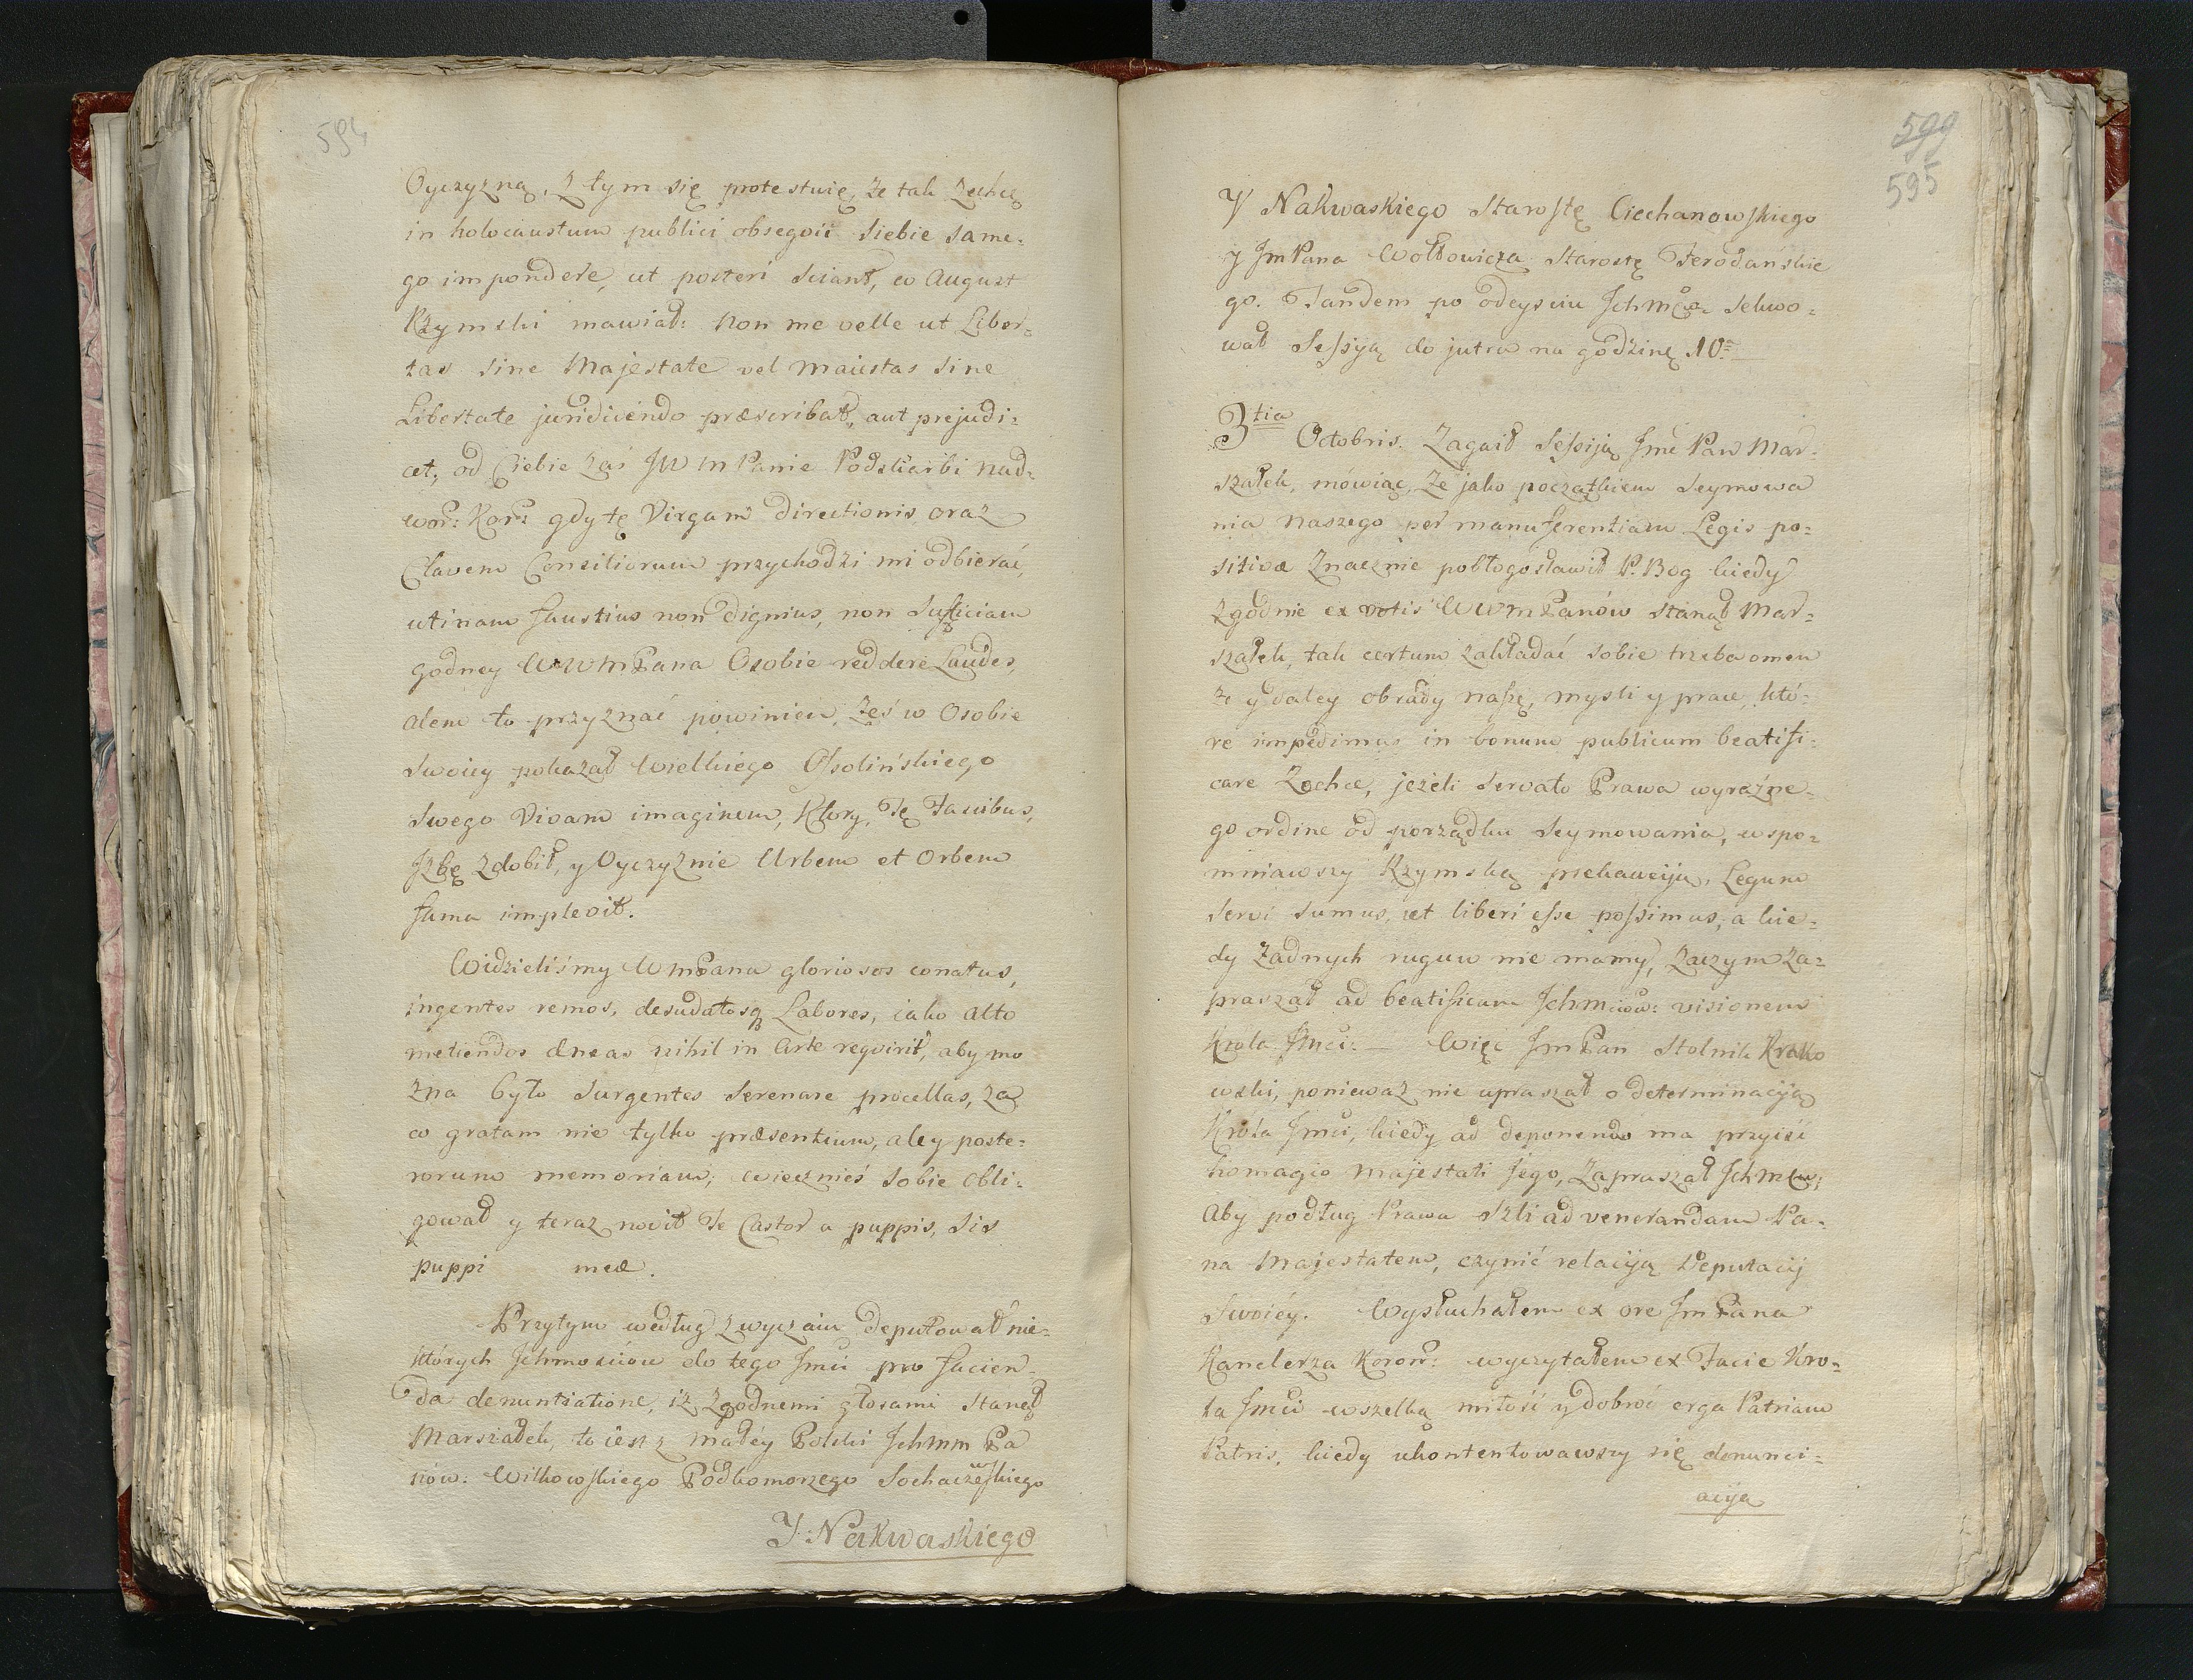 594
Oyczyzną, Z tym się protestuię, Że tak Zechcę
in holocaustum publici obseqvii Siebie Same=
go impondere, ut posteri Sciant, co August
Rzymski mawiał: Non me velle ut Liber=
tas Sine Majestate vel maiestas Sine
Libertate juridicendo præscribat, aut prejudi=
cet, od Ciebie zaś JW m Panie Podskarbi nad=
wor: Kor: gdy tę Virgam directionis oraz
Clavem Consiliorum przychodzi mi odbierać,
utinam faustius non dignius, non Sufficiam
godney WWMPana Osobie reddere Laudes,
alem to przyznać powinien, Żeś w Osobie
Swoiey pokazał wielkiego Ossolińskiego
Swego Vivam imaginem, Ktory, Tę Fascibus,
Jzbę Zdobił, y Oyczyznie Urbem et Orbem
fama implevit.
Widzieliśmy WmPana gloriosos conatus,
ingentes remos, desudatosq Labores, iako alto
metiendos æneas nihil in Arte reqvirit, aby mo
żna było Surgentes Serenare procellas, za
co gratam nie tylko præsentium, ale y poste=
rorum memoriam; wiecznieś Sobie obli=
gował y teraz novit Te Castor a puppis, Sis
puppi meæ.
Przytym według Zwyczaiu deputował nie=
których Jchmościow do tego Jmci pro facien=
da denuntiatione, iż Zgodnemi głosami Stanął
Marszałek, to iest z małey Polski Jchmm Pa
nów: Witkowskiego Podkomorzego Sochaczewskiego
J: Nakwaskiego
599
595
Y Nakwaskiego Starostę Ciechanowskiego
y JmPana Wołłowicza Starostę Ferodańskie
go. Tandem po odeysciu Jchmców Solwo=
wał Sessyą do jutra na godzinę 10
3tia Octobris. Zagaił Sessiją Jmć Pan Mar=
szałek, mówiąc, Że jako początkiem Seymowa
nia naszego per manuferentiam Legis po=
sitivæ Znacznie pobłogosławił P. Bog kiedy
Zgodnie ex votis WWmPanów Stanął Mar=
szałek, tak certum zakładać Sobie trzeba omen
że y daley obrady nasze, mysli y prace, któ=
re impedimus in bonum publicum beatifi=
care Zechce, jeżeli Servato Prawa wyraźne=
go ordine od porządku Seymowania, wspo=
mniawszy Rzymską Legum
Servi Sumus, ut liberi esse possimus, a kie=
dy Żadnych rugow nie mamy, Zaczym Za=
praszał ad beatificam Jchmciow: visionem
Krola Jmci. — Więc JmPan Stolnik Krako
wski, ponieważ nie upraszał o determinacyą
Króla Jmci, kiedy ad deponendo ma przyiść
homagio majestati jego, Zapraszał Jchmcw;
Aby podług Prawa Szli ad venerandam Pa=
na Majestatem, czynić relacyą Deputacij
Swoiéy. Wysłuchałem ex ore JmPana
Kanclerza Koron: wyczytałem ex Facie Kro=
la Jmci wszelką miłość y dobroć erga Patriam
Patris, kiedy ukontentowawszy się denunci=
acyą